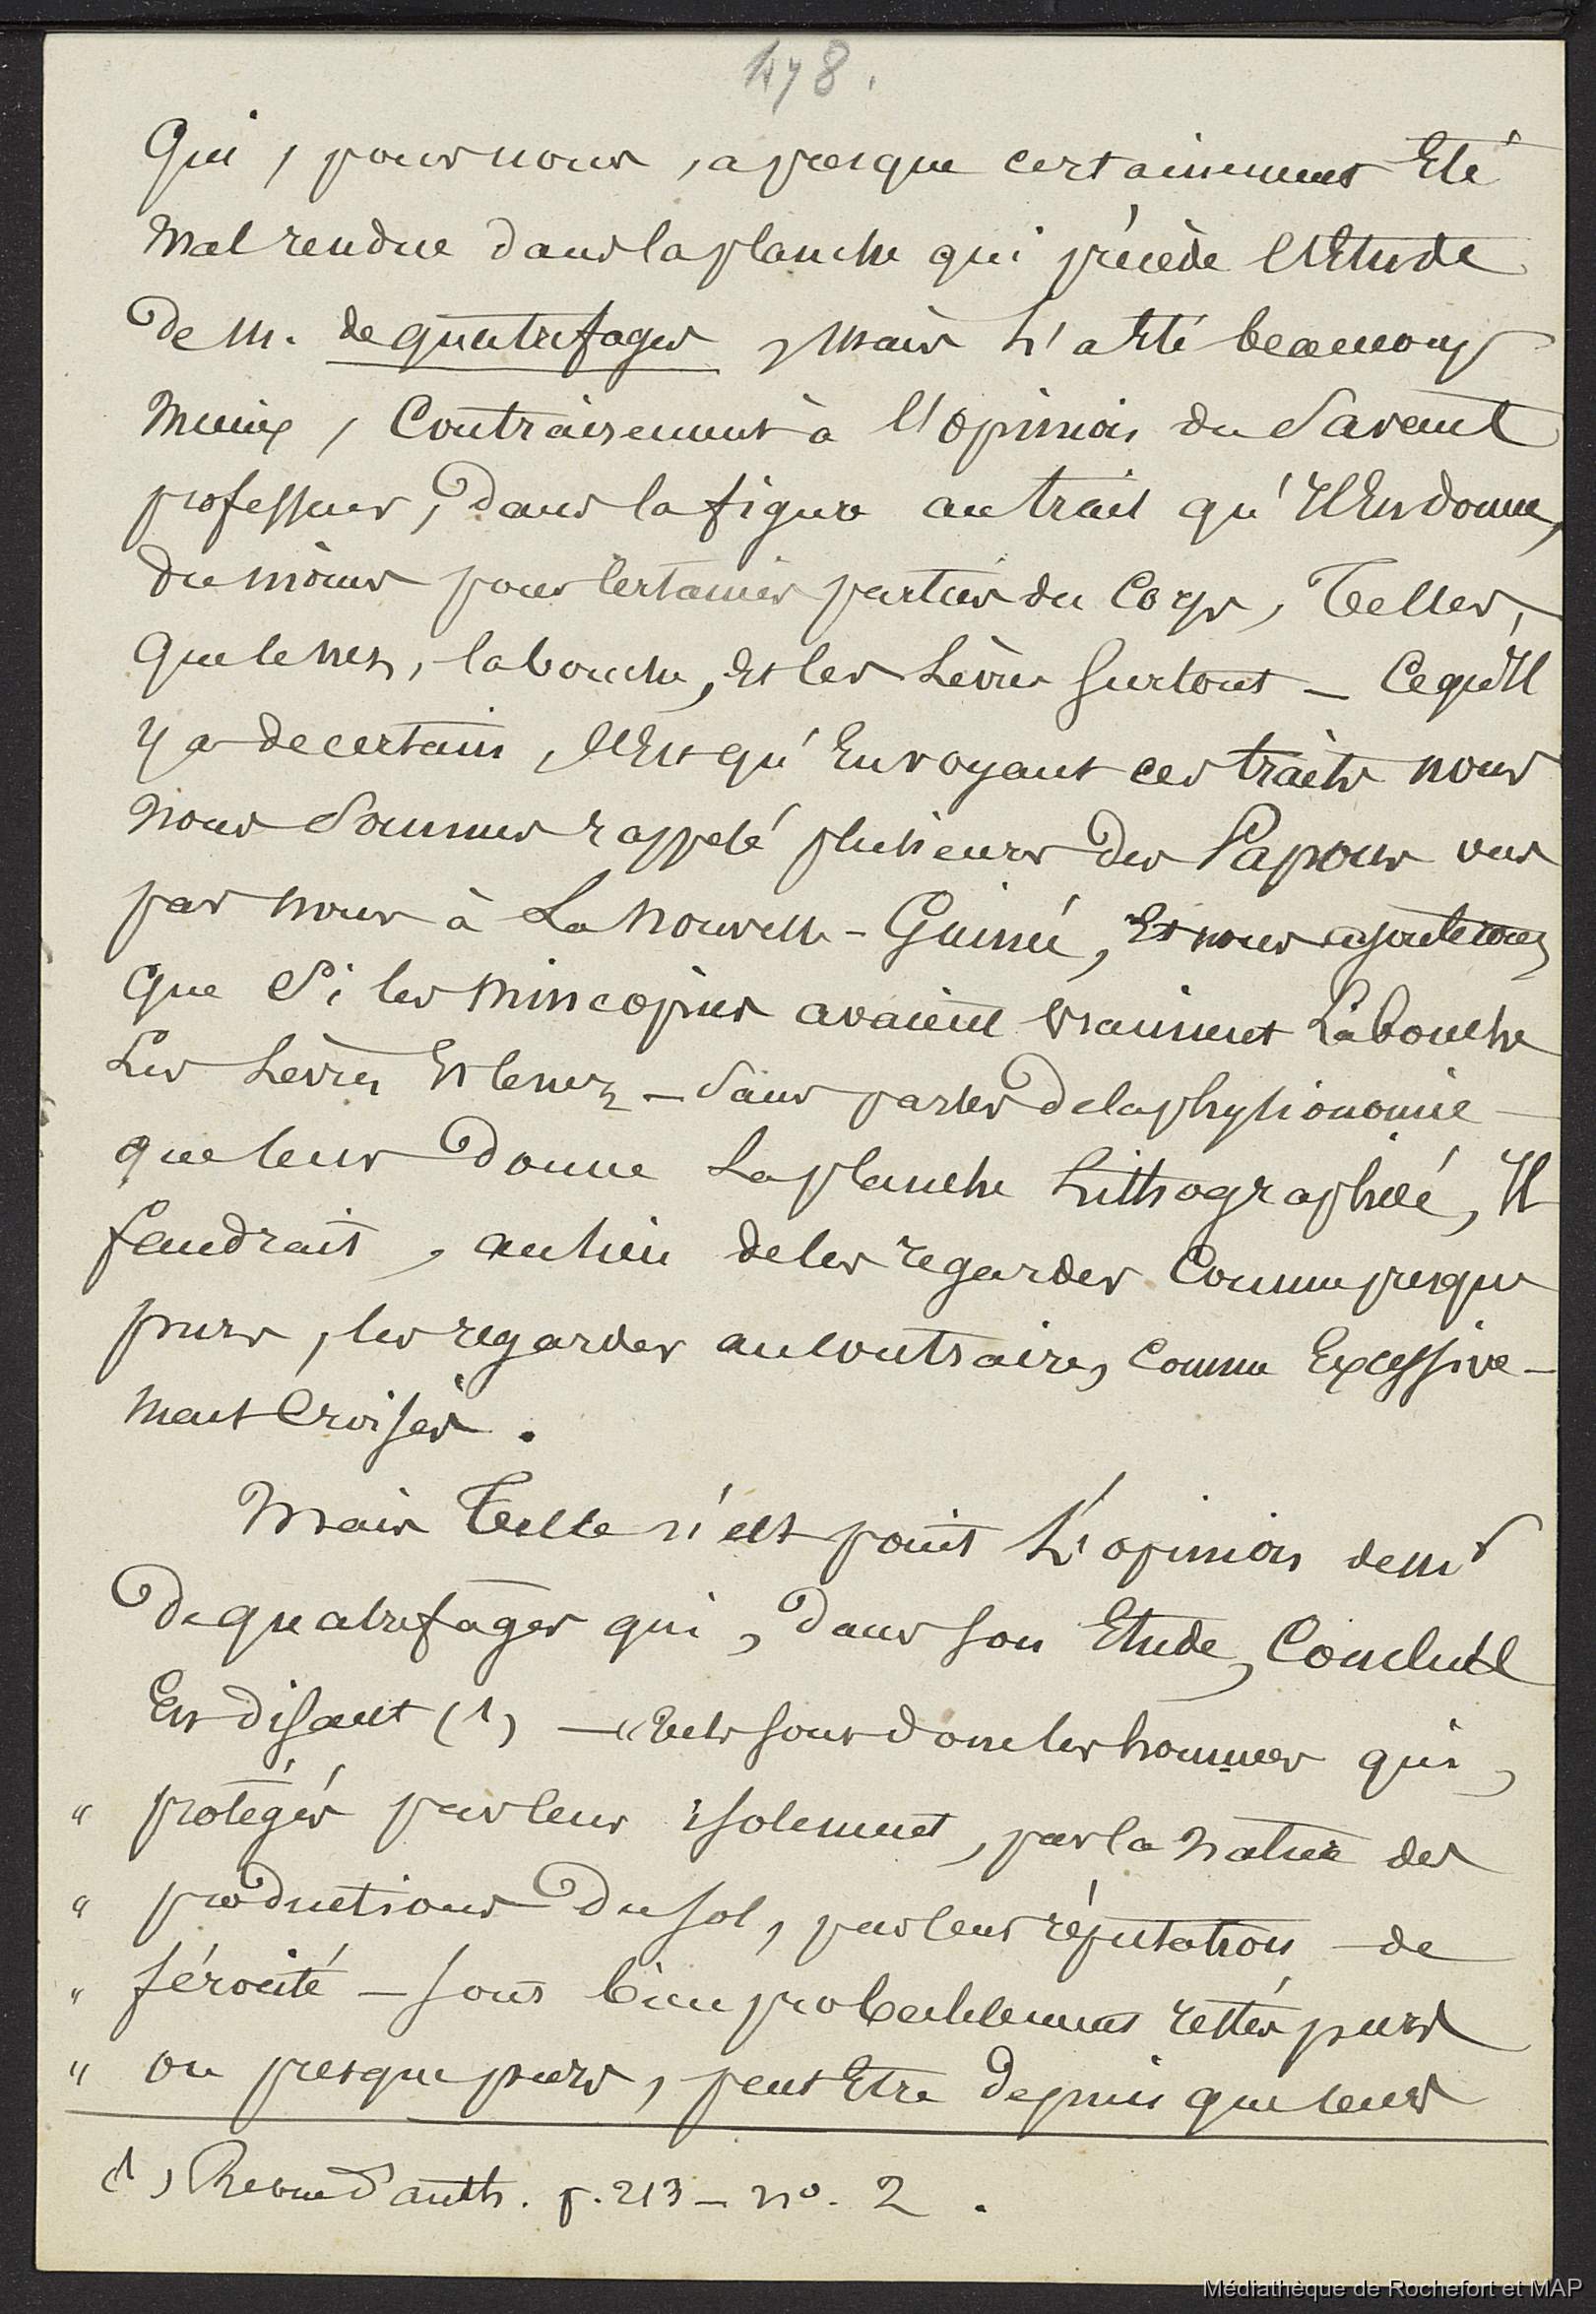 478.
Qui, pour nous, a presque certainement Eté
Mal rendue dans la planche qui précède l'Etude
De M. de quatrefages, Mais L'a Eté beaucoup
Mieux, Contrairement à l'opinion du Savant
professeur, Dans la figure au trait qu'Il En donne,
Du moins pour Certaines parties du Corps, Telles,
Que le nez, la bouche, Et les Lèvres Surtout — Ce qu'Il
y a de certain, C'Est qu'En voyant ces traits nous
Nous Sommes rappelé plusieurs des Papous vus
par nous à La Nouvelle-Guinée, Et nous ajouterons
Que Si les Mincopies avaient vraiment La bouche
Les Lèvres Et le nez — Sans parler De la physionomie —
que leur Donne La planche Lithographiée, Il
faudrait, au lieu de les regarder Comme presque
purs, les regarder au contraire, comme Excessive-
ment Croisés.
Mais Telle n'est point L'opinion de Mr
De quatrefages qui, Dans son Etude, Conclut
En disant (1) — « Tels sont donc les hommes qui,
" protégés par leur isolement, par la Nature des
" productions Du sol, par leur réputation de
" férocité — sont bien probablement restés purs
" ou presque purs, peut Etre Depuis que leurs
(1) Revue d'anth. p. 213 — no. 2.
Médiathèque de Rochefort et MAP